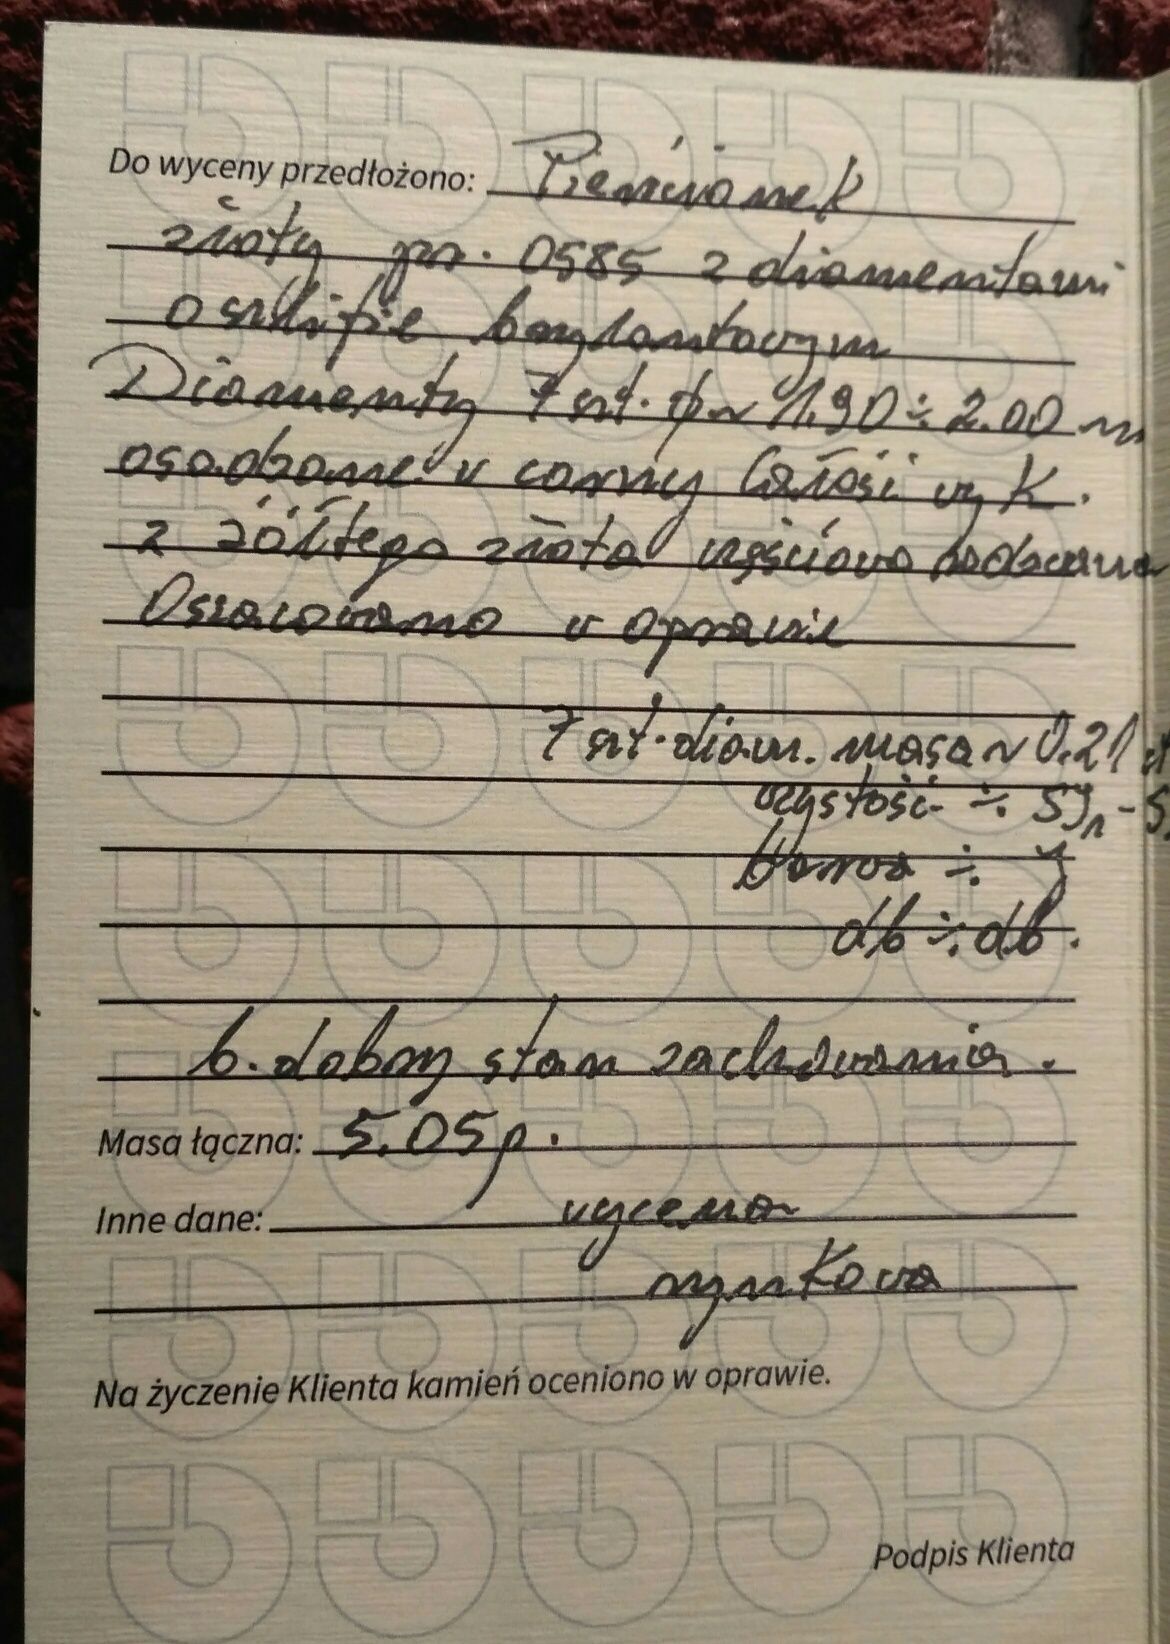 Do wyceny przedłożono: Pierścionek
złoty pr. 0585 z diamentami
o szlifie brylantowym
Diamenty 7 szt. ~ 1.90 ÷ 2.00 m
osadzone w carny Całość wyk.
z żółtego złota częściowo rodowana
Oszacowano w oprawie
7 szt. diam. masa ~ 0.21 ct
czystość ÷ SJ₁ - S
barwa ÷ J
db ÷ db.
b. dobry stan zachowania.
Masa łączna: 5.05 g.
Inne dane: wycena
rynkowa
Na życzenie Klienta kamień oceniono w oprawie.
Podpis Klienta